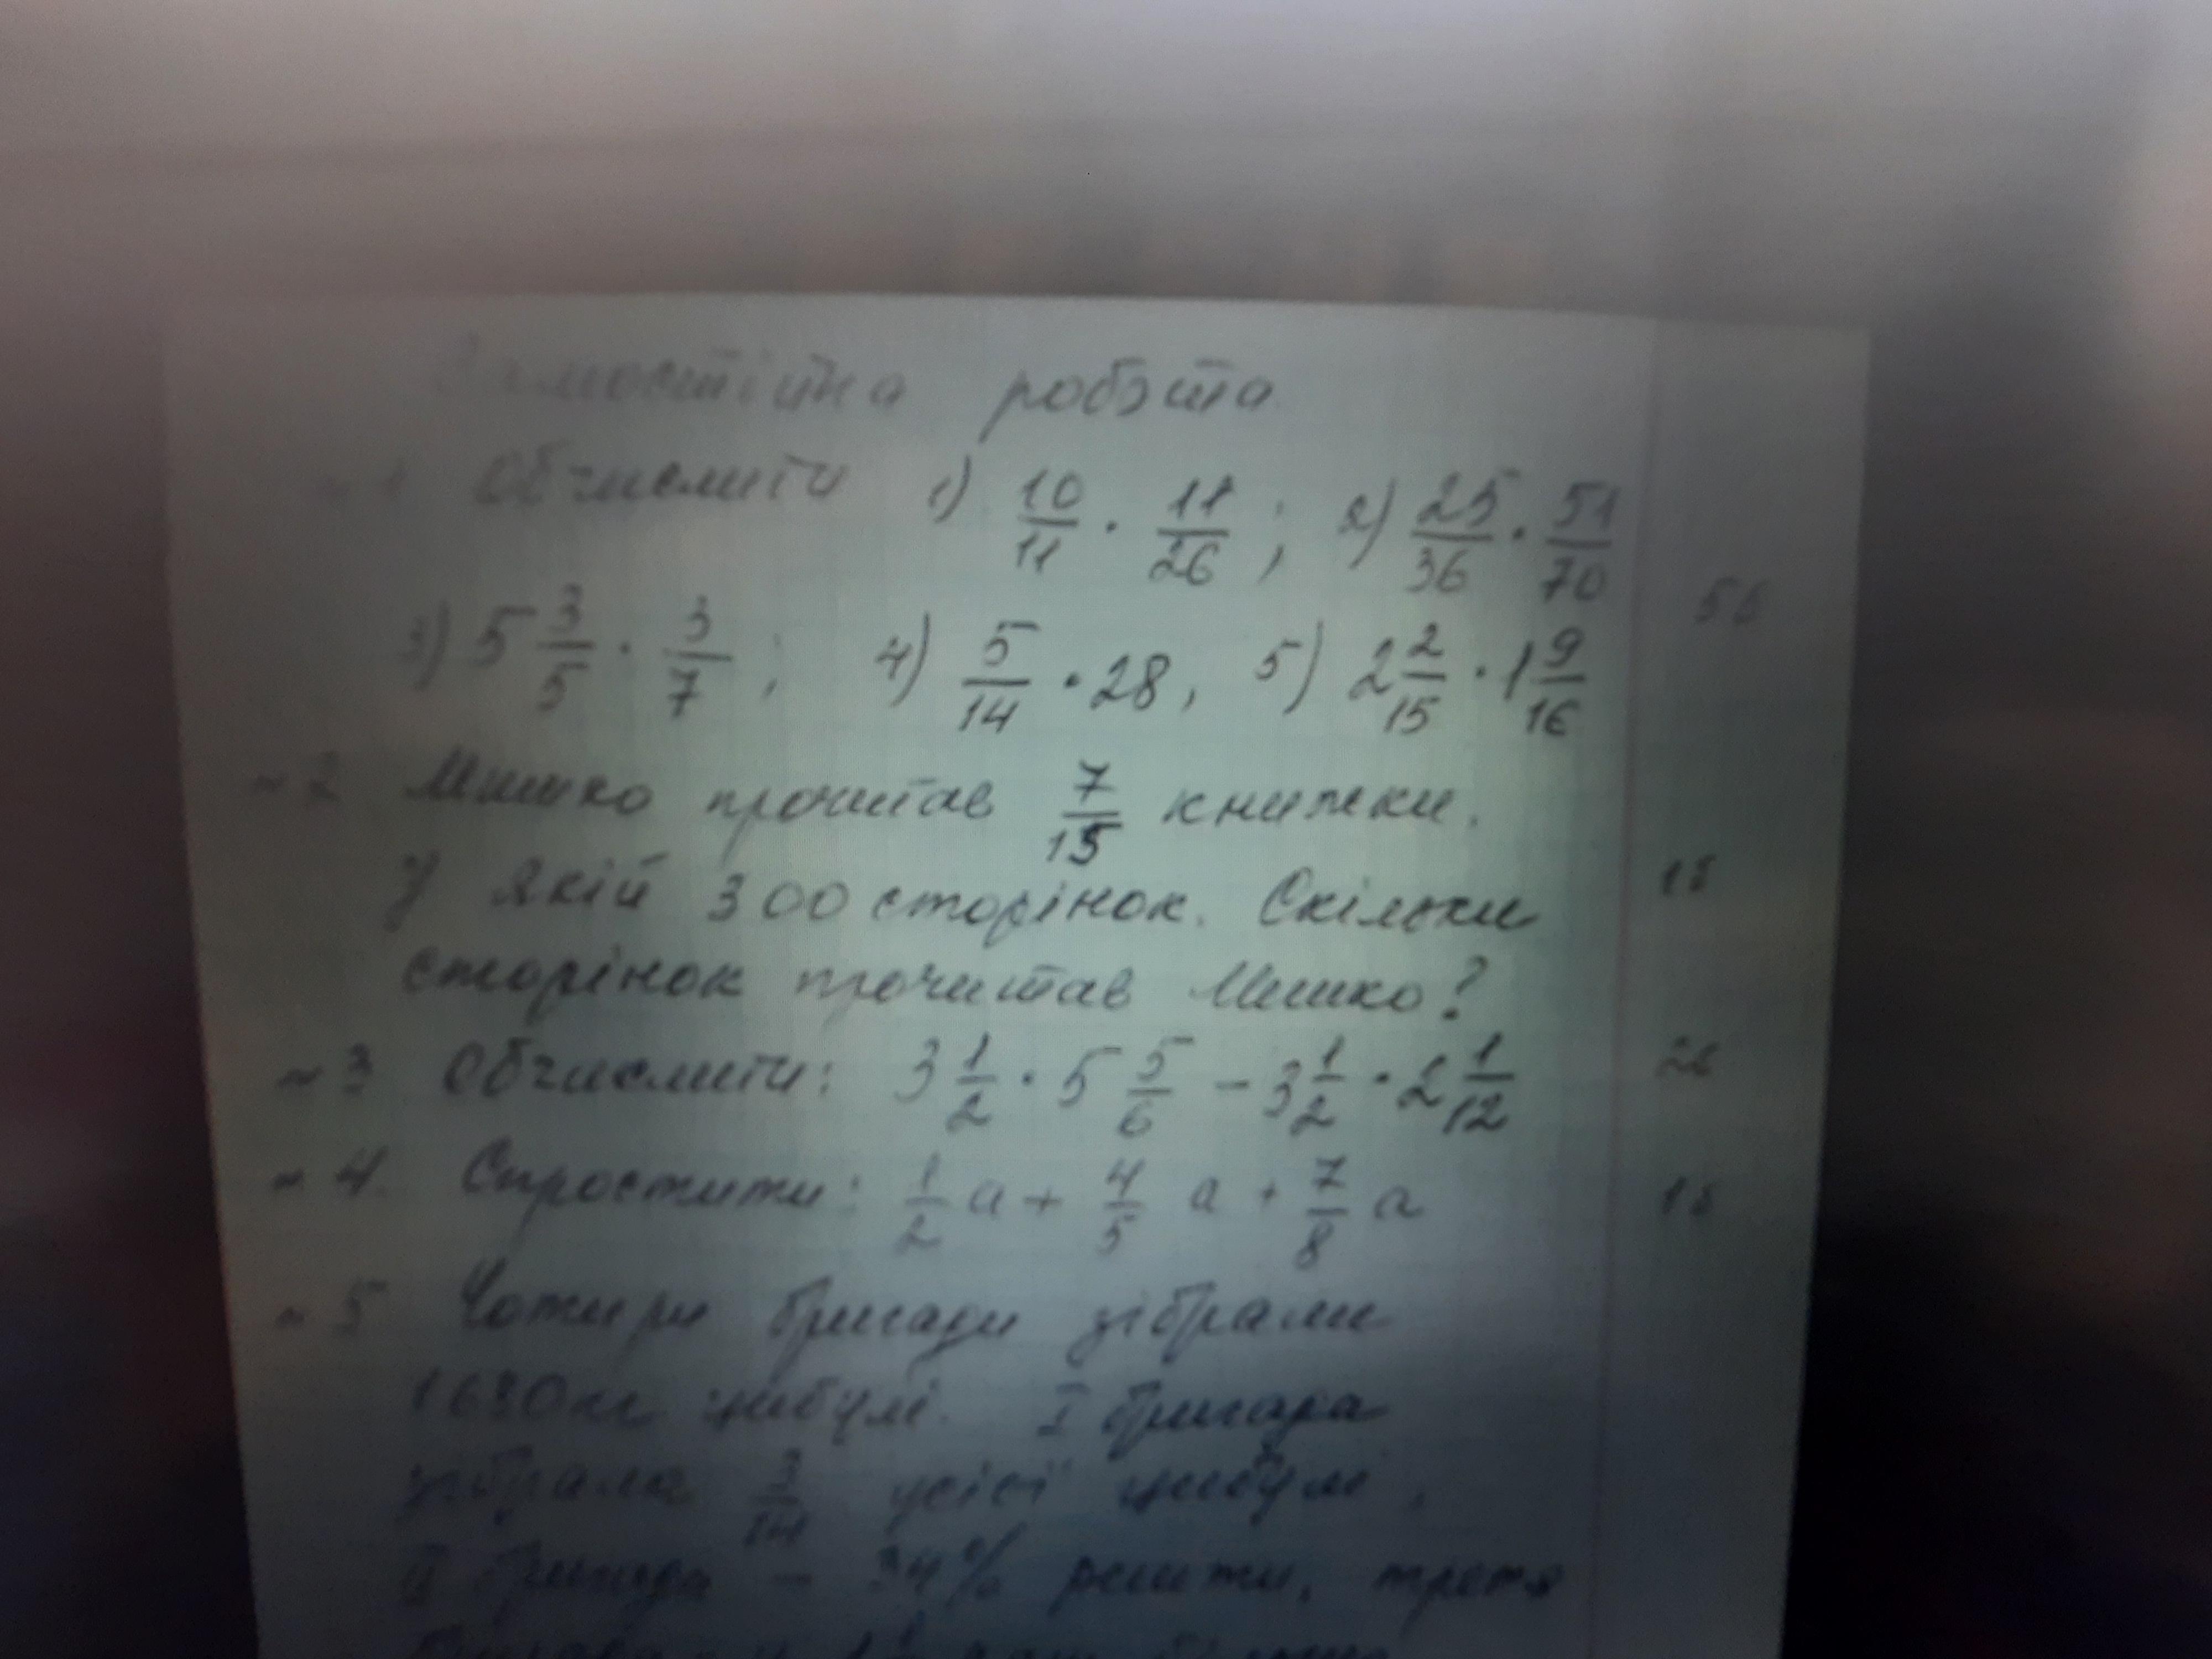 Самостійна робота
№1 Обчислити 1) 10/11 · 11/26 ; 2) 25/36 · 51/70
3) 5 3/5 · 3/7 ; 4) 5/14 · 28, 5) 2 2/15 · 1 9/16 5б
№2 Мишко прочитав 7/15 книжки,
у якій 300 сторінок. Скільки 1б
сторінок прочитав Мишко?
№3 Обчислити: 3 1/2 · 5 5/6 - 3 1/2 · 2 1/12 2б
№4. Спростити: 1/2 a + 4/5 a + 7/8 a 1б
№5 Чотири бригади зібрали
кг цибулі. I бригада
зібрала 3/14 усієї цибулі,
II бригада - 34% решти, третя